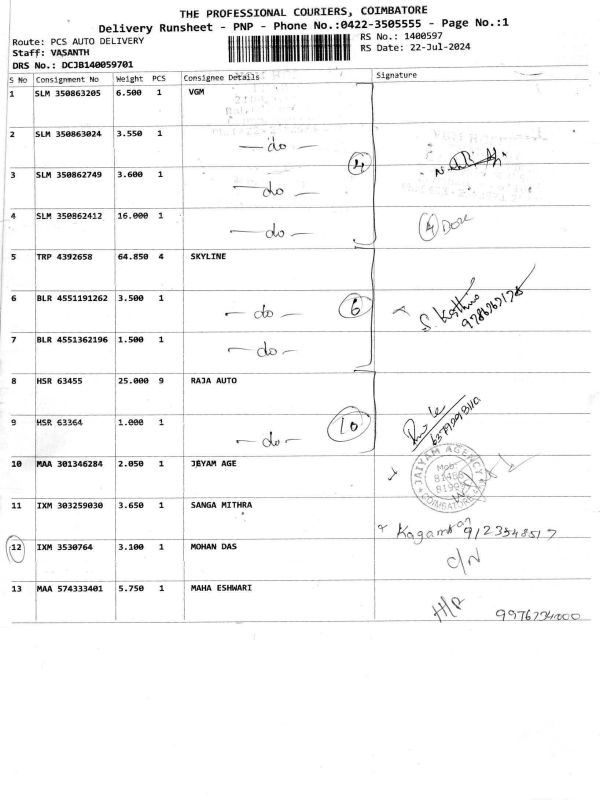 THE PROFESSIONAL COURIERS, COIMBATORE
Delivery Runsheet - PNP - Phone No.:0422-3505555 - Page No.:1
Route: PCS AUTO DELIVERY RS No.: 1400597
Staff: VASANTH RS Date: 22-Jul-2024
DRS No.: DCJB140059701
S No Consignment No Weight PCS Consignee Details Signature
1 SLM 350863205 6.500 1 VGM
2 SLM 350863024 3.550 1 -do-
4
3 SLM 350862749 3.600 1 -do-
4 SLM 350862412 16.000 1 -do- 4 Dox
5 TRP 4392658 64.850 4 SKYLINE
6 BLR 4551191262 3.500 1 -do- 6
7 BLR 4551362196 1.500 1 -do-
8 HSR 63455 25.000 9 RAJA AUTO
9 HSR 63364 1.000 1 -do- 10
10 MAA 301346284 2.050 1 JEYAM AGE
JAIYAM AGENCY
Mob:
COIMBATORE
11 IXM 303259030 3.650 1 SANGA MITHRA
12 IXM 3530764 3.100 1 MOHAN DAS C/N
13 MAA 574333401 5.750 1 MAHA ESHWARI H/P